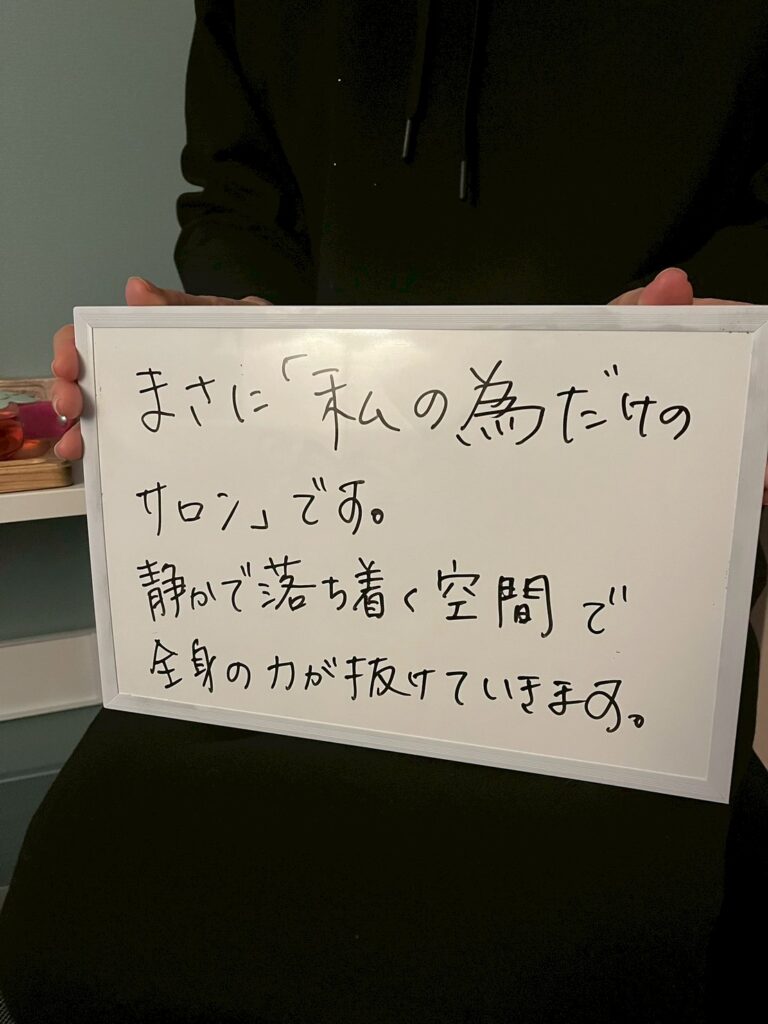 まさに「私の為だけの
サロン」です。
静かで落ち着く空間で
全身の力が抜けていきます。